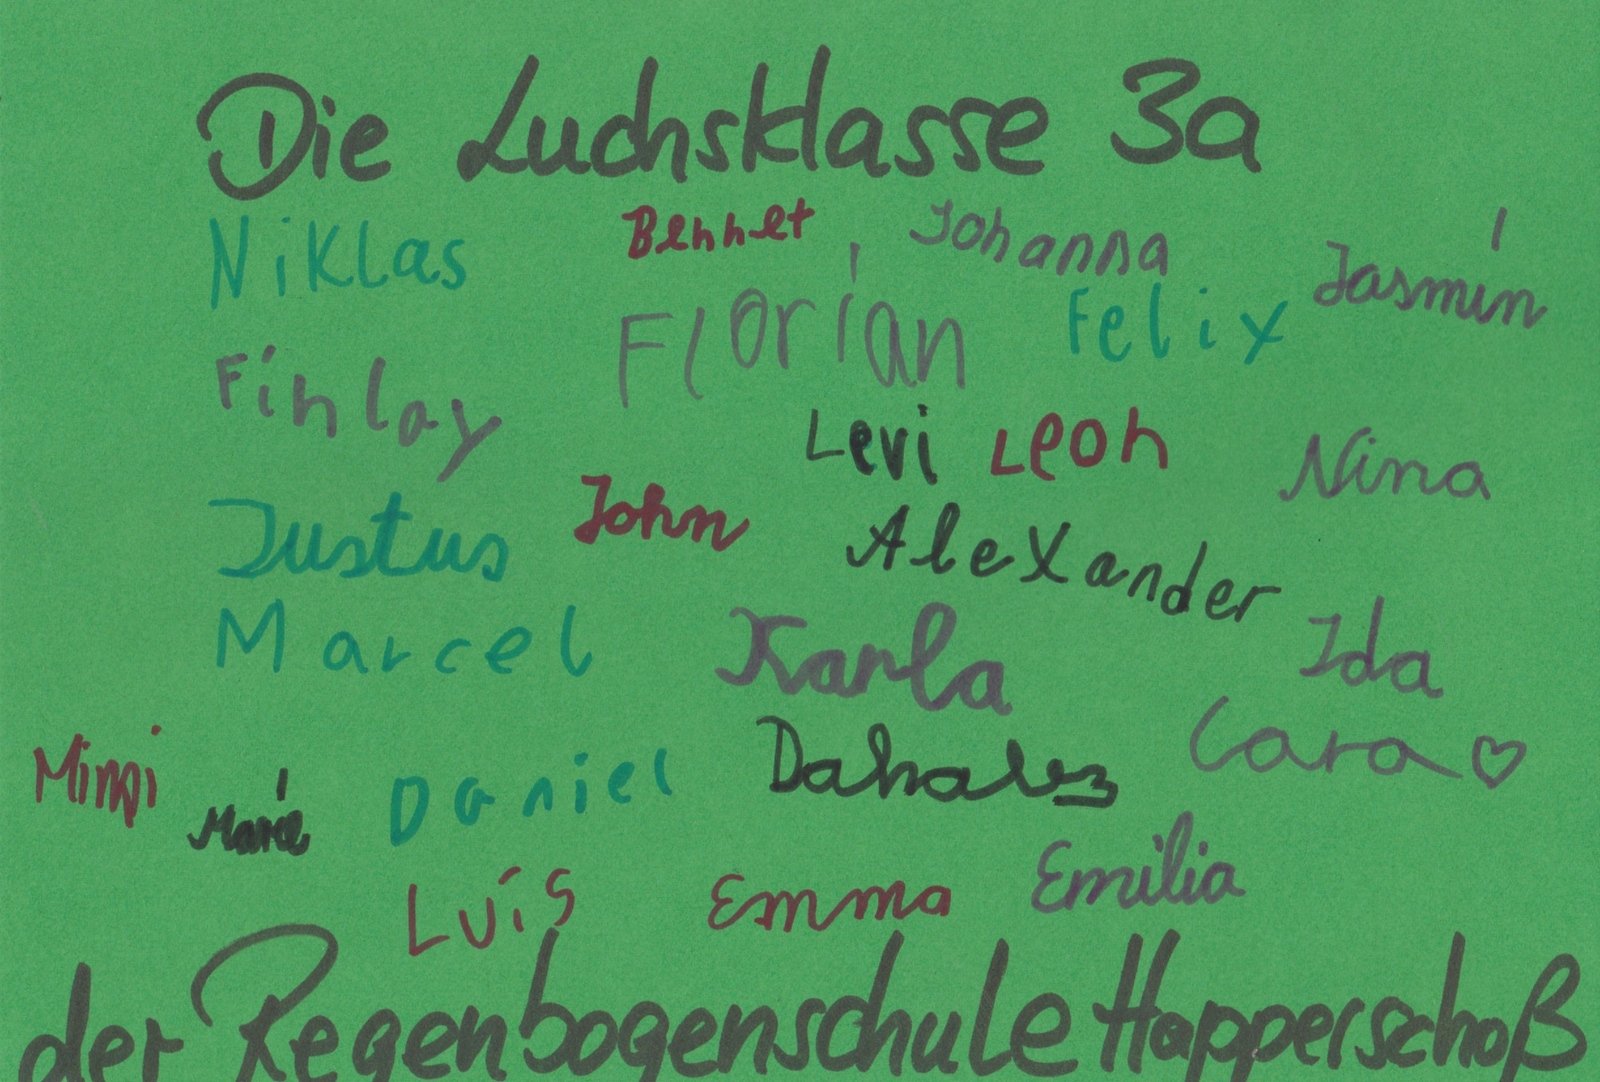 Die Luchsklasse 3a
Niklas Bennet Johanna Jasmin
Finlay Florian Felix
Levi Leon Nina
Justus John Alexander
Marcel Karla Ida
Mimi Marie Daniel Cara ♡
Luis Emma Emilia
der Regenbogenschule Happerschoß